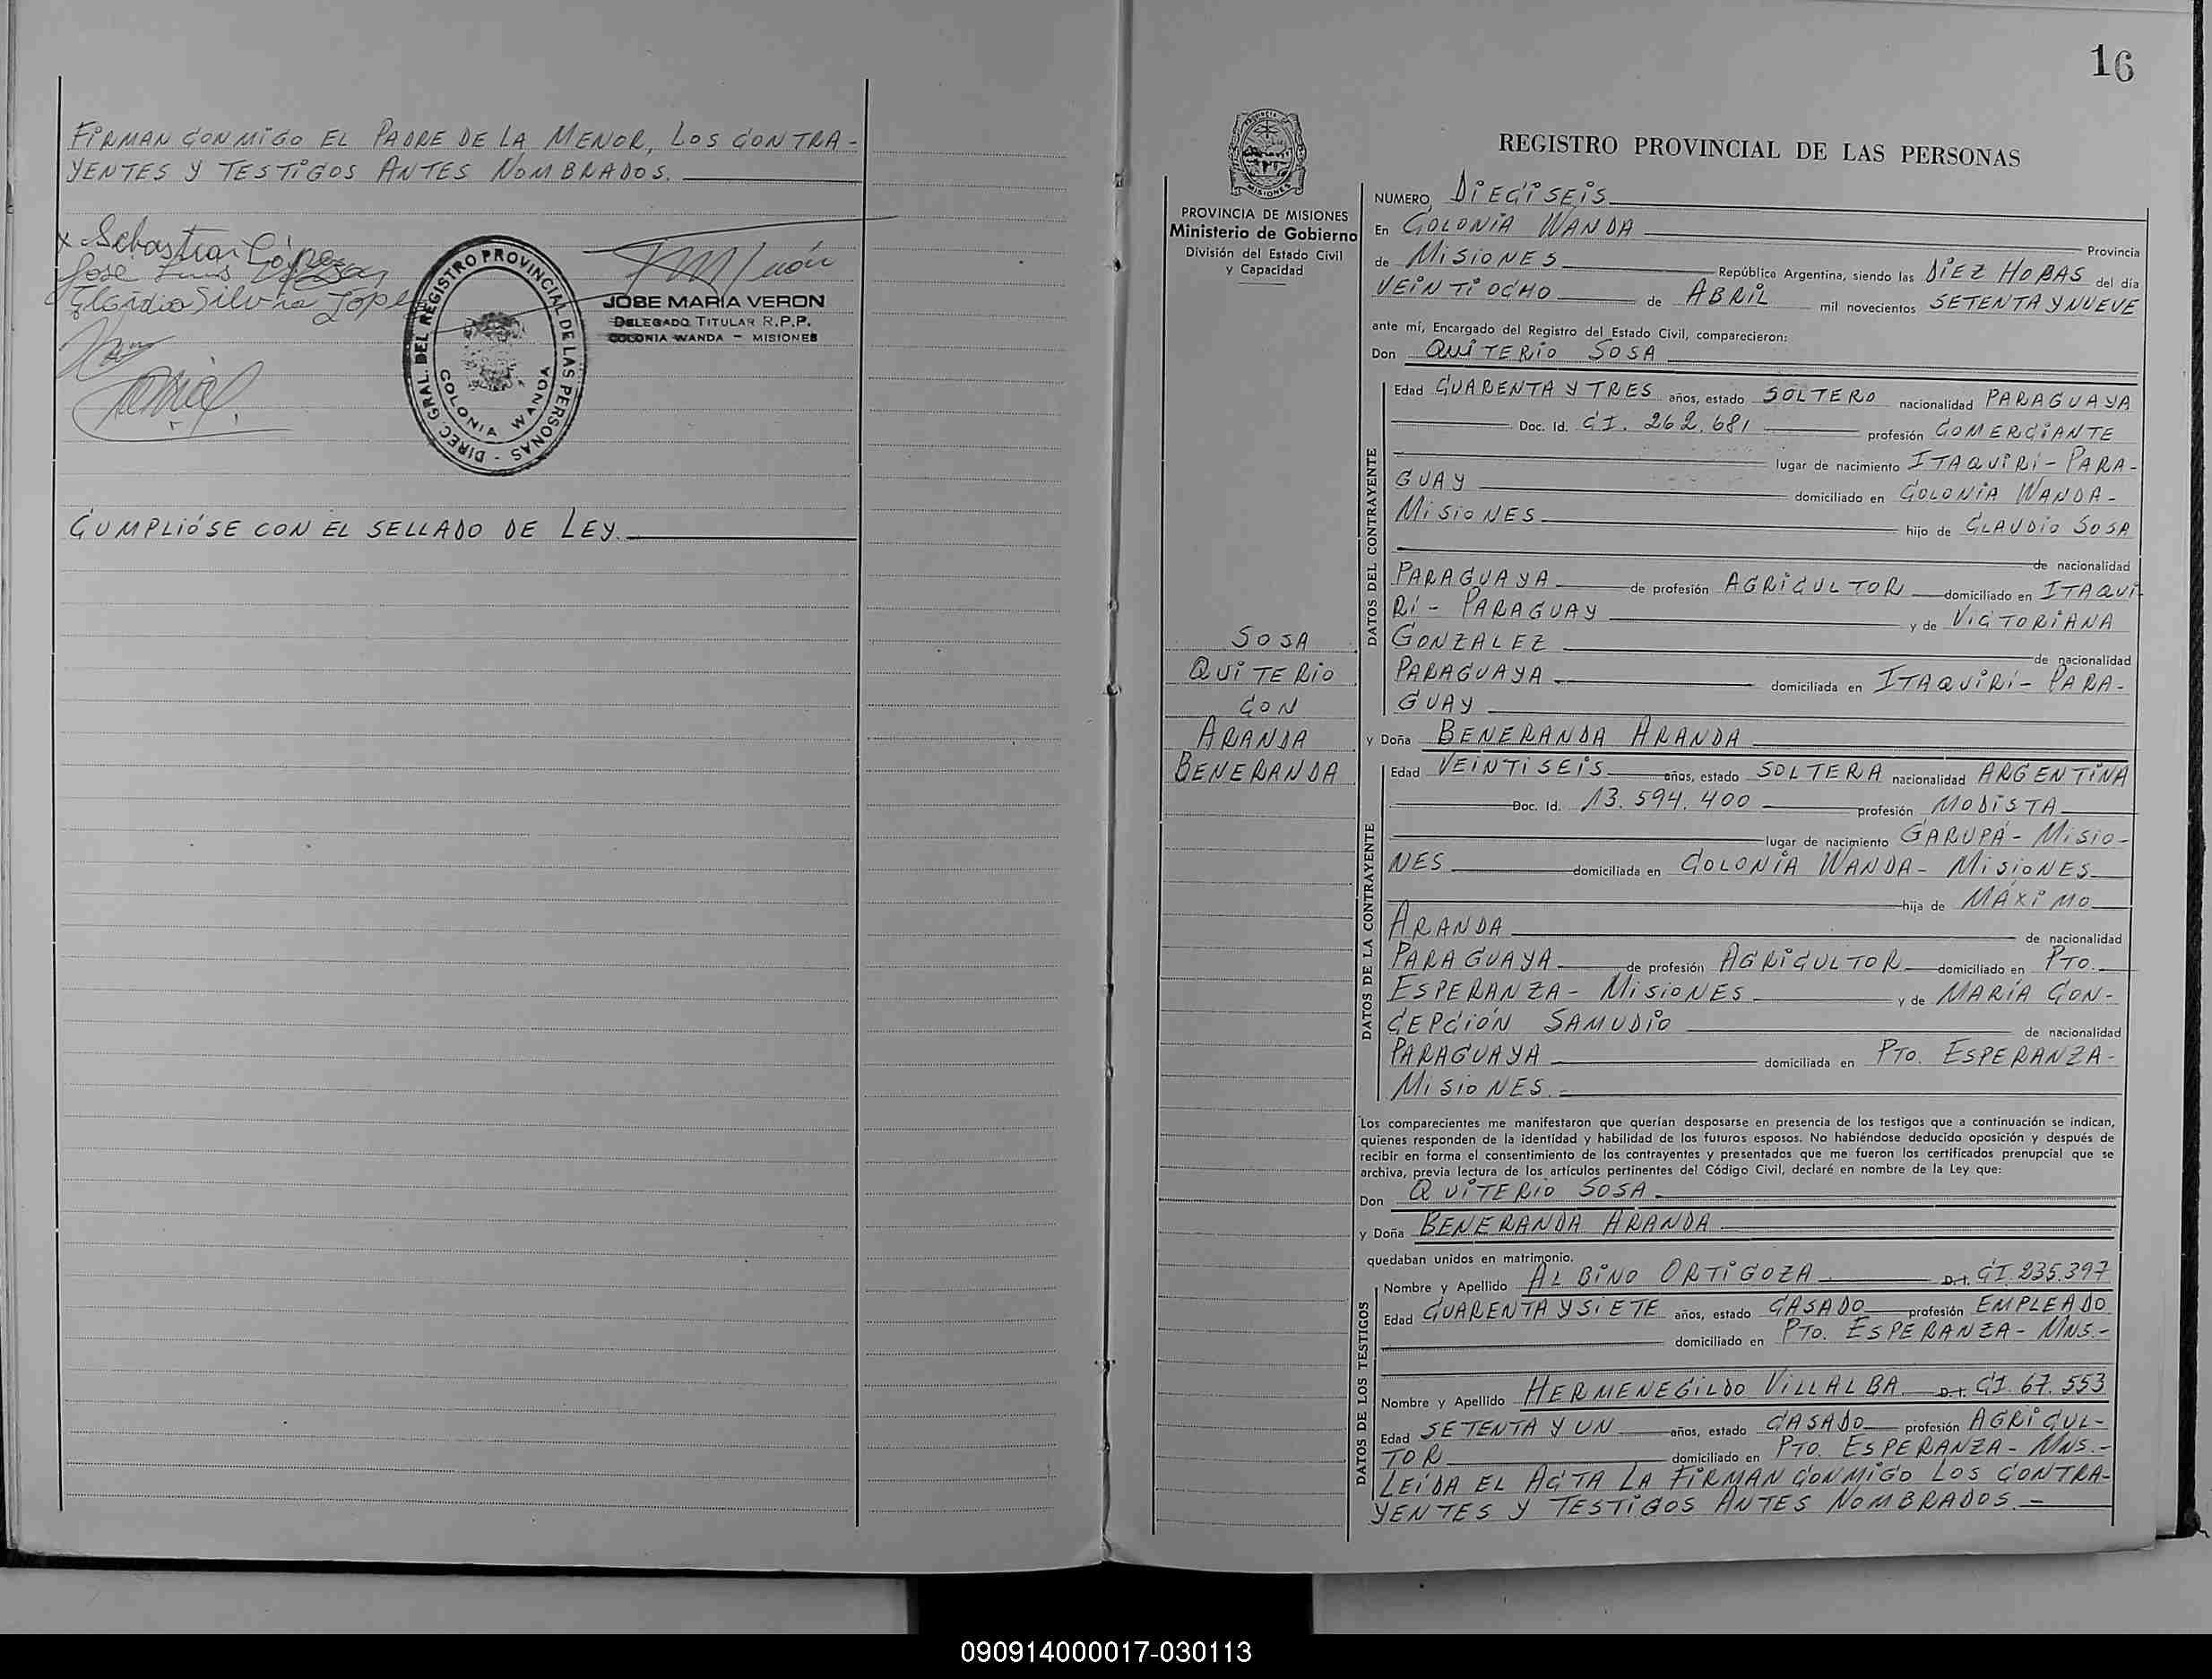 FIRMAN CONMIGO EL PADRE DE LA MENOR, LOS CONTRA-
YENTES Y TESTIGOS ANTES NOMBRADOS.
x Sebastian López
Jose Luis
Silvina Lope
DIREC. GRAL. DEL REGISTRO PROVINCIAL DE LAS PERSONAS -
COLONIA WANDA
JOSE MARIA VERON
DELEGADO TITULAR R.P.P.
COLONIA WANDA - MISIONES
CUMPLIÓSE CON EL SELLADO DE LEY.
16
PROVINCIA DE MISIONES
Ministerio de Gobierno
División del Estado Civil
y Capacidad
SOSA
QUITERIO
CON
ARANDA
BENERANDA
REGISTRO PROVINCIAL DE LAS PERSONAS
NUMERO DIECISEIS
En COLONIA WANDA Provincia
de MISIONES República Argentina, siendo las DIEZ HORAS del día
VEINTIOCHO de ABRIL mil novecientos SETENTA Y NUEVE
ante mí, Encargado del Registro del Estado Civil, comparecieron:
Don QUITERIO SOSA
DATOS DEL CONTRAYENTE
Edad CUARENTA Y TRES años, estado SOLTERO nacionalidad PARAGUAYA
Doc. Id. CI. 262.681 profesión COMERCIANTE
lugar de nacimiento ITAQUIRÍ - PARA-
GUAY domiciliado en COLONIA WANDA-
MISIONES hijo de CLAUDIO SOSA
de nacionalidad
PARAGUAYA de profesión AGRICULTOR domiciliado en ITAQUI
RÍ - PARAGUAY y de VICTORIANA
GONZALEZ de nacionalidad
PARAGUAYA domiciliada en ITAQUIRÍ - PARA-
GUAY
y Doña BENERANDA ARANDA
DATOS DE LA CONTRAYENTE
Edad VEINTISEIS años, estado SOLTERA nacionalidad ARGENTINA
Doc. Id. 13.594.400 profesión MODISTA
lugar de nacimiento GARUPÁ - MISIO-
NES domiciliada en COLONIA WANDA - MISIONES
hija de MÁXIMO
ARANDA de nacionalidad
PARAGUAYA de profesión AGRICULTOR domiciliado en PTO.
ESPERANZA - MISIONES y de MARÍA CON-
CEPCIÓN SAMUDIO de nacionalidad
PARAGUAYA domiciliada en PTO. ESPERANZA-
MISIONES.
Los comparecientes me manifestaron que querían desposarse en presencia de los testigos que a continuación se indican,
quienes responden de la identidad y habilidad de los futuros esposos. No habiéndose deducido oposición y después de
recibir en forma el consentimiento de los contrayentes y presentados que me fueron los certificados prenupcial que se
archiva, previa lectura de los artículos pertinentes del Código Civil, declaré en nombre de la Ley que:
Don QUITERIO SOSA
y Doña BENERANDA ARANDA
quedaban unidos en matrimonio.
DATOS DE LOS TESTIGOS
Nombre y Apellido ALBINO ORTIGOZA D.I. CI. 235.397
Edad CUARENTA Y SIETE años, estado CASADO profesión EMPLEADO
domiciliado en PTO. ESPERANZA - MNS.-
Nombre y Apellido HERMENEGILDO VILLALBA D.I. CI. 67.553
Edad SETENTA Y UN años, estado CASADO profesión AGRICUL-
TOR domiciliado en PTO. ESPERANZA - MNS.-
LEÍDA EL ACTA LA FIRMAN CONMIGO LOS CONTRA-
YENTES Y TESTIGOS ANTES NOMBRADOS.-
090914000017-030113